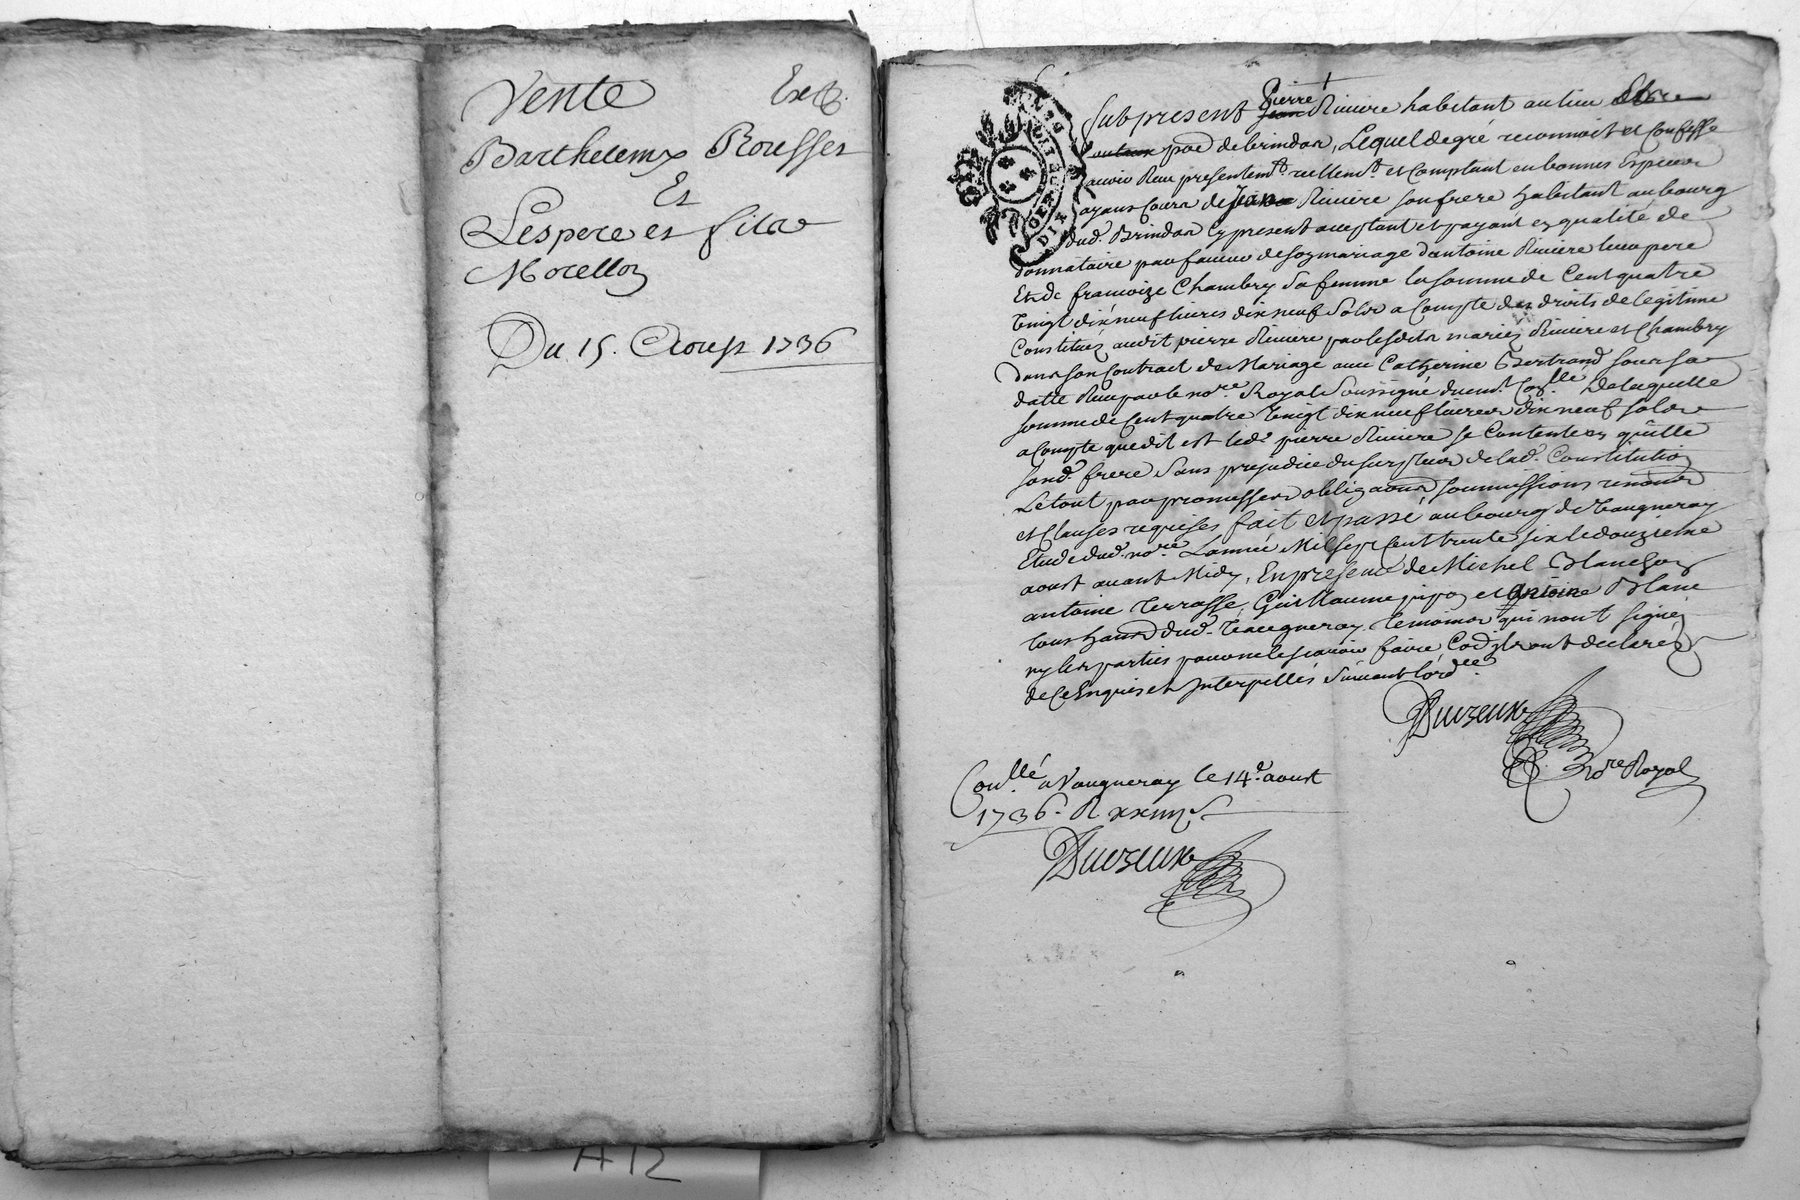 Vente Ex
Barthelemy Rousset
Et
Les pere et fils
Morellon
Du 15. Aoust 1736
fut present Pierre Riviere habitant au lieu
parr de brindas, Lequel de gré reconnoit et Confesse
avoir Reçu presentemt. reellemt. et Comptant en bonnes Especes
ayans Cours de Jean Riviere son frere habitant au bourg
dud. Brindas Cy present aceptant et payant en qualité de
donnataire par faveur de son mariage d'antoine Riviere leur pere
Et de francoize Chambry sa femme la somme de Cent quatre
Vingt dix neuf livres dix neuf Sols a Compte des droits de legitime
Constituéz audit pierre Riviere par lesdits mariez Riviere et Chambry
dans son Contrat de Mariage avec Catherine Bertrand sous sa
datte Reçu par le nore. Royal Soussigné duemt. Conllé. De laquelle
somme de Cent quatre Vingt dix neuf livres dix neuf sols
a Compte que dit est led. pierre Riviere se Contente en quitte
sond. frere sans prejudice du surplus de lad. Constitution
Le tout par promesses obligaons soumissions
et Clauses requises fait et passé au bourg de Vaugneray
Etude dud. nore. L'année Mil sept Cent trente six le douzieme
aoust avant Midy, En presence de Michel Blanchon
antoine Terrasse, Guillaume et Antoine Blanc
tous hans dud. Vaugneray temoins qui n'ont signé
ny les parties pour ne le scavoir faire Co ils ont declaréz
de Ce Enquis et Interpellés Suivant l'ordce.
nore Royal
Conllé a Vaugneray le 14e. aoust
1736. R